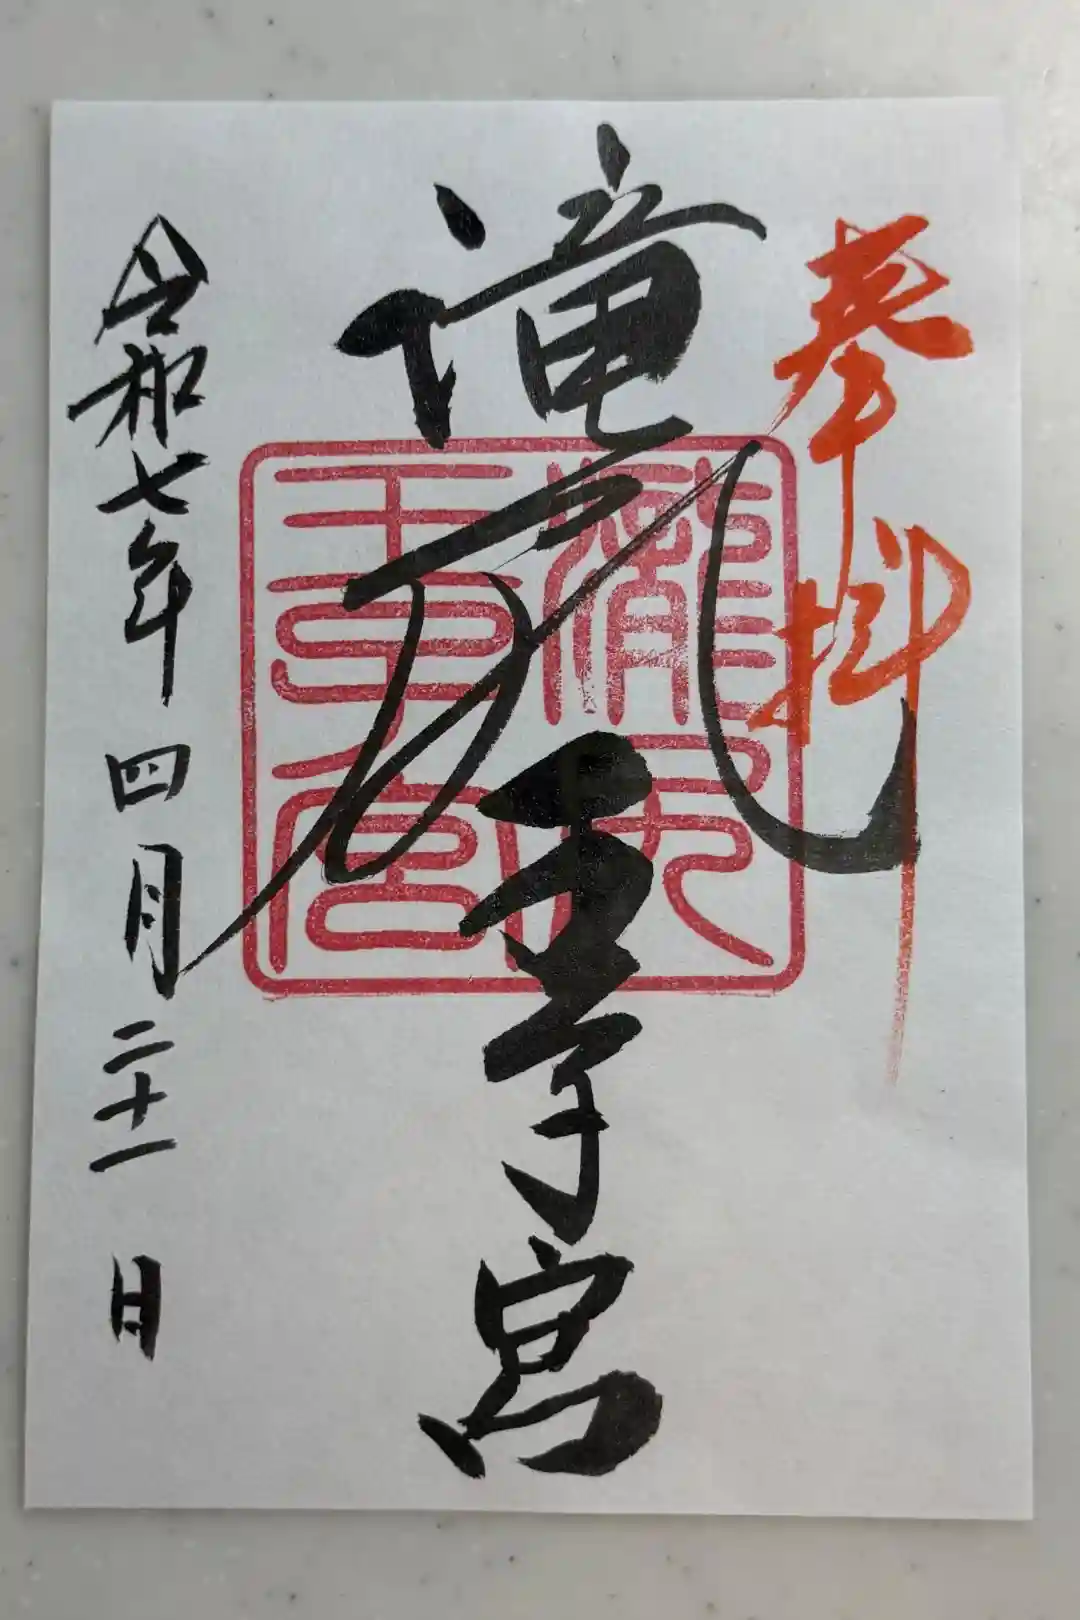 奉拝
滝尻王子宮
瀧尻
王子宮
令和七年四月二十一日